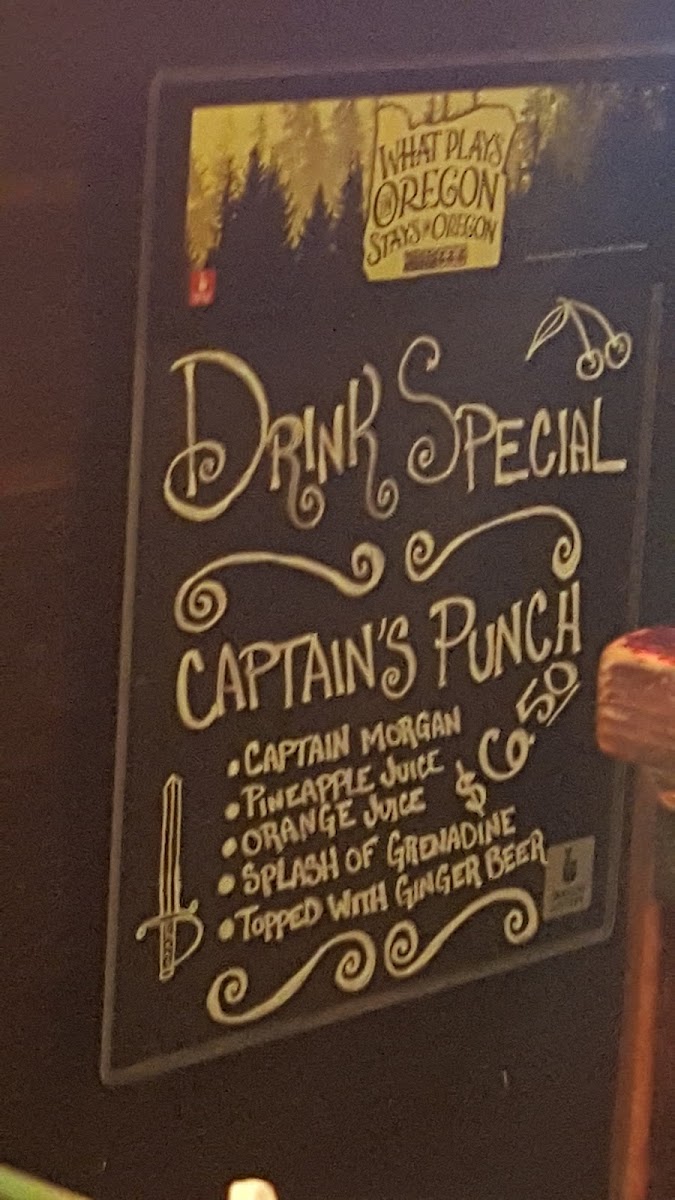 WHAT PLAYS
IN OREGON
STAYS IN OREGON
DRINK SPECIAL
CAPTAIN'S PUNCH
$6.50
• CAPTAIN MORGAN
• PINEAPPLE JUICE
• ORANGE JUICE
• SPLASH OF GRENADINE
• TOPPED WITH GINGER BEER